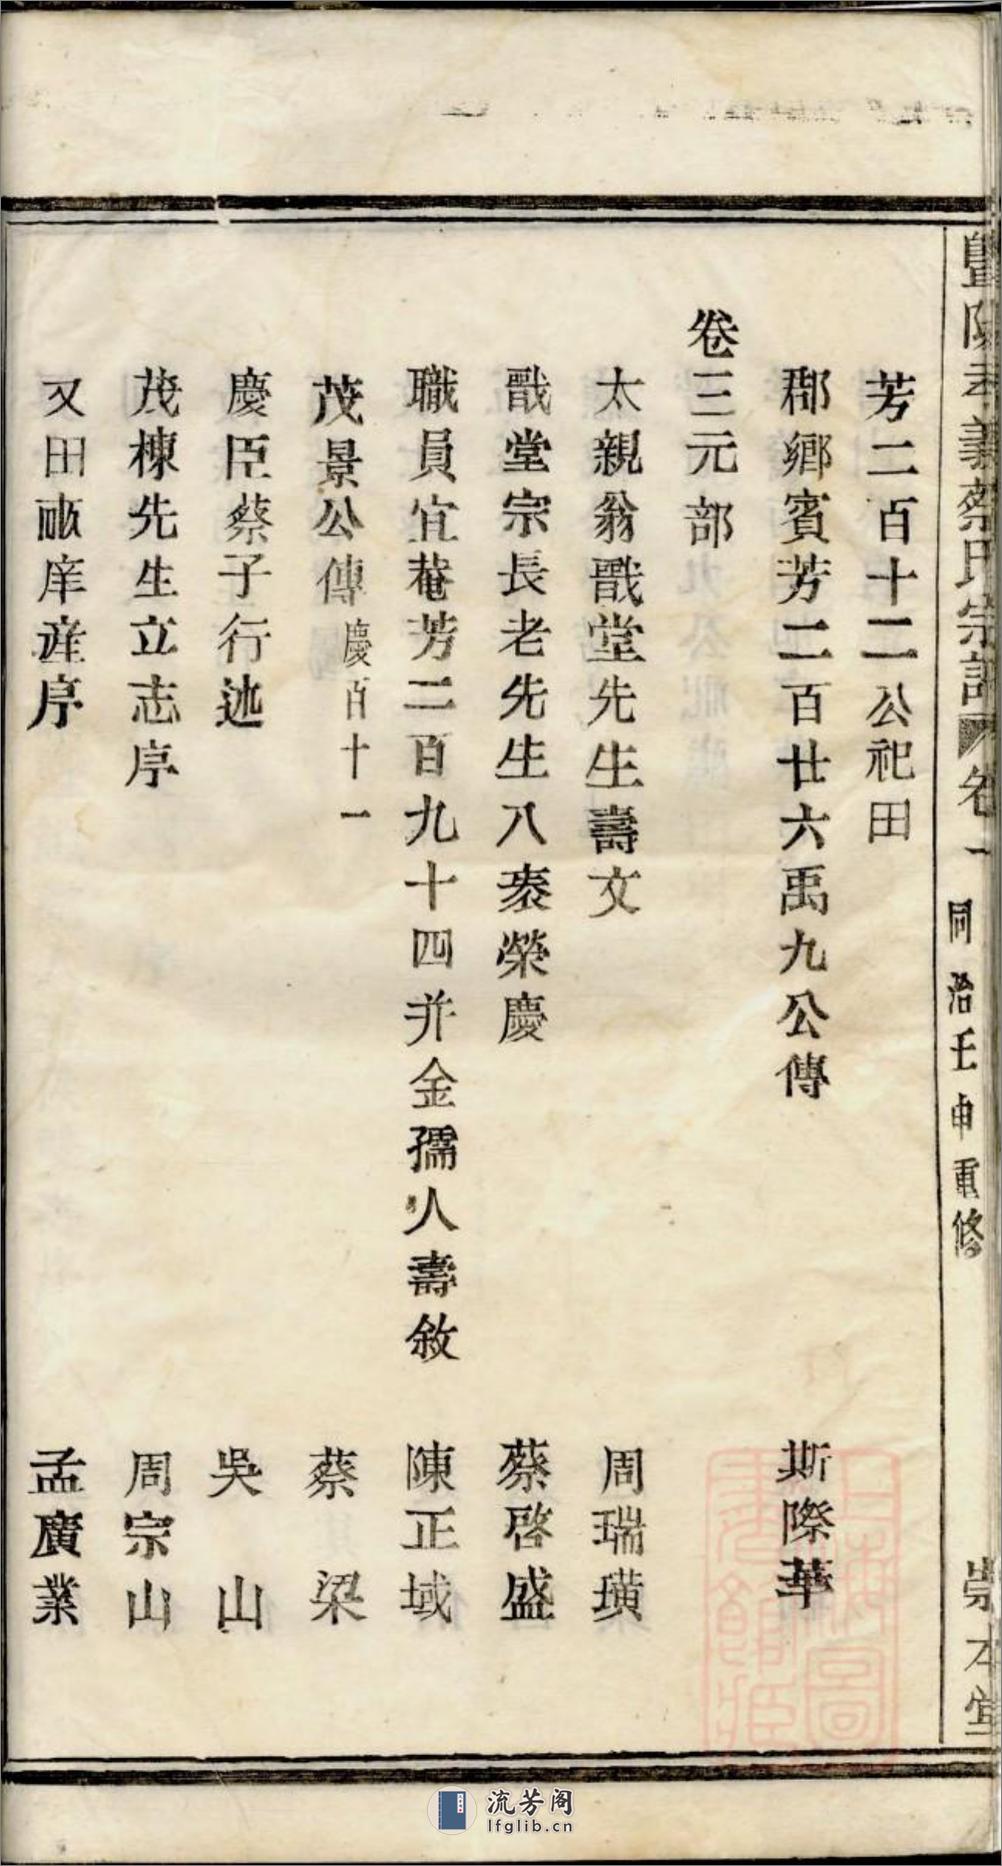 暨陽孝義蔡氏宗譜 卷一 同治壬申重修 崇本堂
芳二百十二公祀田
郡鄉賓芳二百廿六禹九公傳 斯際華
卷三元部
太親翁戩堂先生壽文 周瑞璜
戩堂宗長老先生八袠榮慶 蔡啓盛
職員宜菴芳二百九十四并金孺人壽敘 陳正域
茂景公傳 慶百十一 蔡梁
慶臣蔡子行述 吳山
茂棟先生立志序 周宗山
又田畝庠産序 孟廣業
流芳阁
lfglib.cn